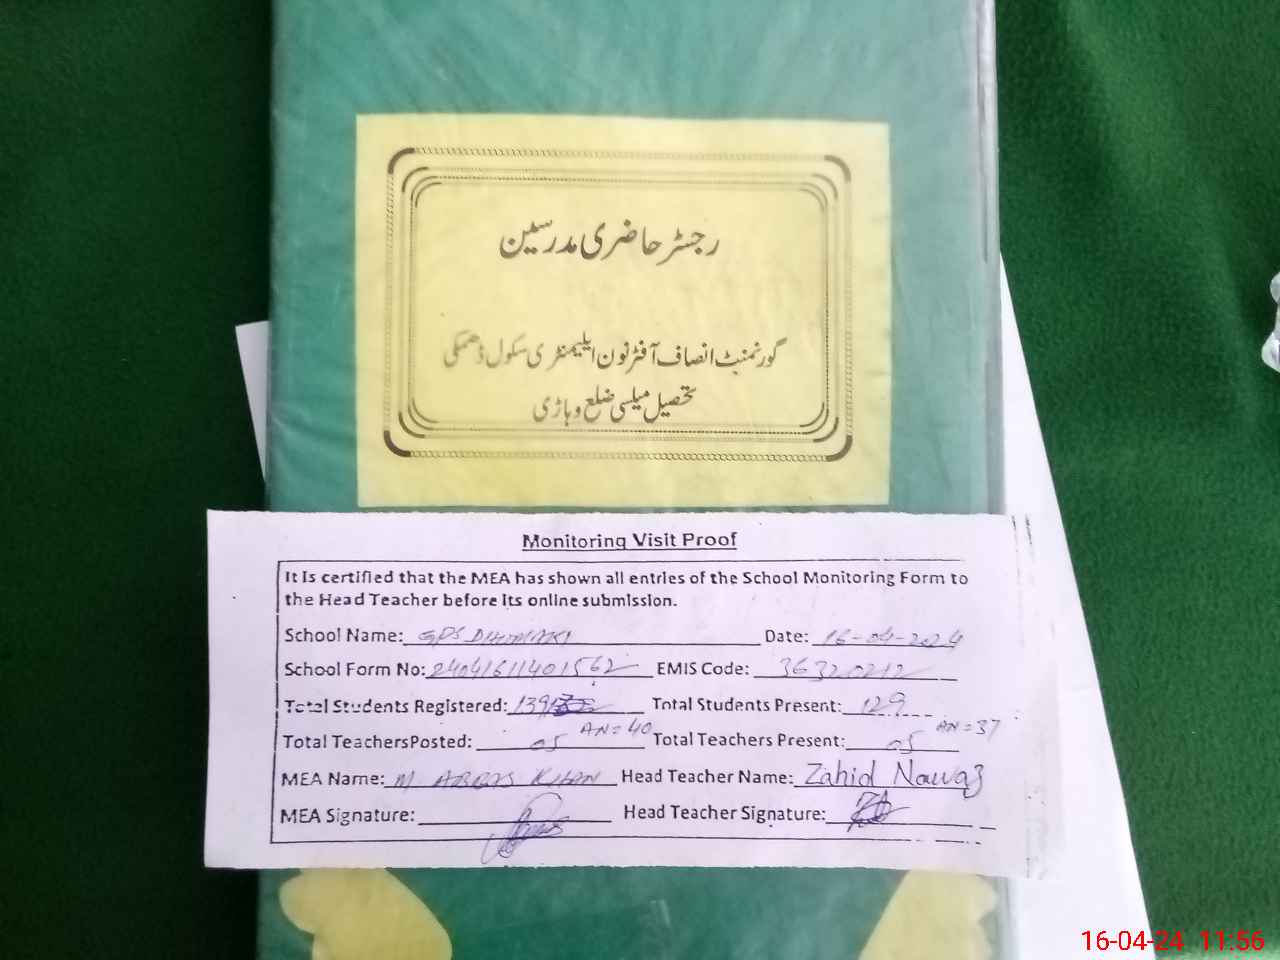 رجسٹر حاضری مدرسین
گورنمنٹ انصاف آفٹرنون ایلیمنٹری سکول ڈھمکی
تحصیل میلسی ضلع وہاڑی
Monitoring Visit Proof
It is certified that the MEA has shown all entries of the School Monitoring Form to
the Head Teacher before its online submission.
School Name: GPS DHUMAKI Date: 16-04-2024
School Form No: 24041611401562 EMIS Code: 36320212
Total Students Registered: 139 Total Students Present: 129
AN=40 AN=37
Total TeachersPosted: 05 Total Teachers Present: 05
MEA Name: M ABBAS KHAN Head Teacher Name: Zahid Nawaz
MEA Signature: Head Teacher Signature:
16-04-24 11:56